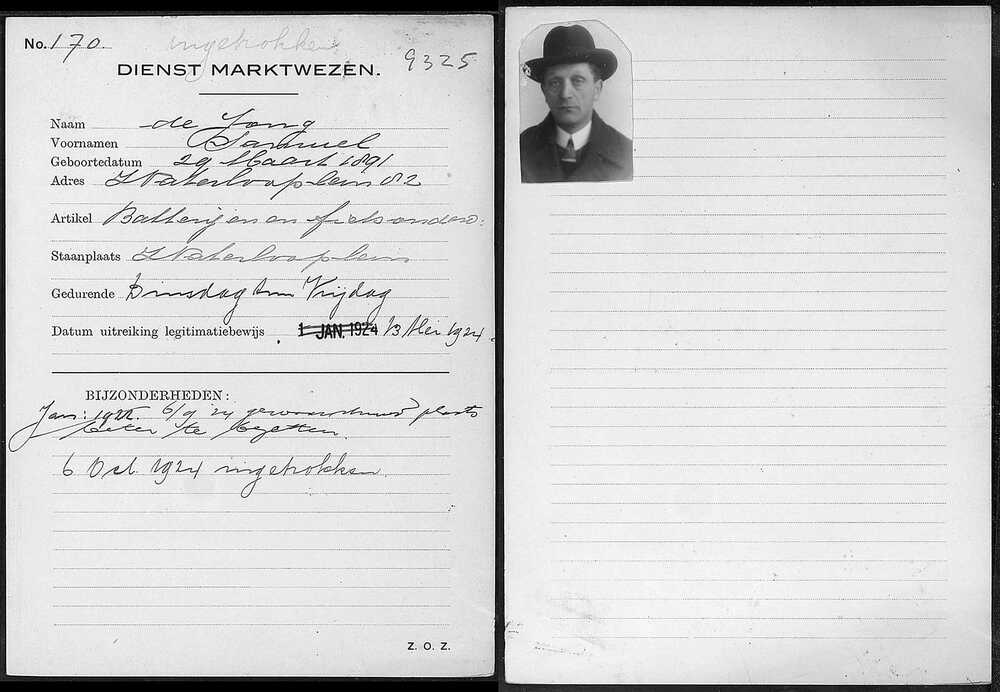 No. 170.
ingetrokken
9325
DIENST MARKTWEZEN.
Naam de Jong
Voornamen Samuel
Geboortedatum 29 Maart 1891
Adres Waterlooplein 82
Artikel Batterijen en fietsonderd:
Staanplaats Waterlooplein
Gedurende Dinsdag t/m Vrijdag
Datum uitreiking legitimatiebewijs 1 JAN. 1924 13 Mei 1924.
BIJZONDERHEDEN:
Jan: 1922. 6/9 24 gewaarschuwd plaats
beter te bezetten.
6 Oct. 1924 ingetrokken.
Z. O. Z.